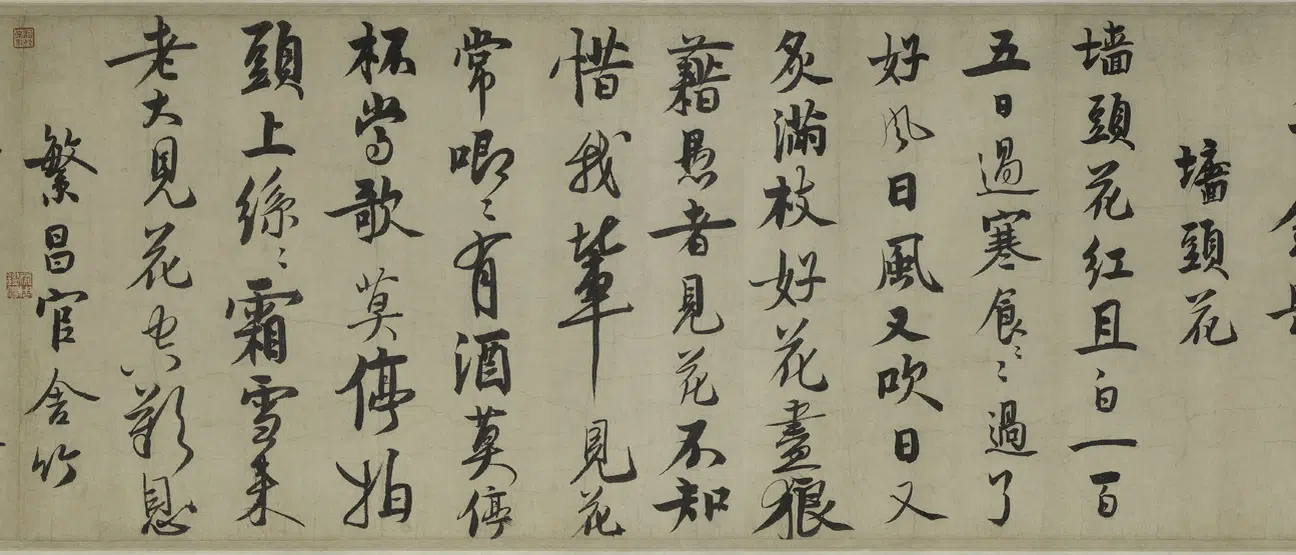 墻頭花
墻頭花紅且白一百
五日過寒食〻過了
好風日風又吹日又
炙滿枝好花盡狼
藉愚者見花不知
惜我輩見花
常唧〻有酒莫停
杯當歌莫停拍
頭上絲〻霜雪来
老大見花空歎息
繁昌官舍竹